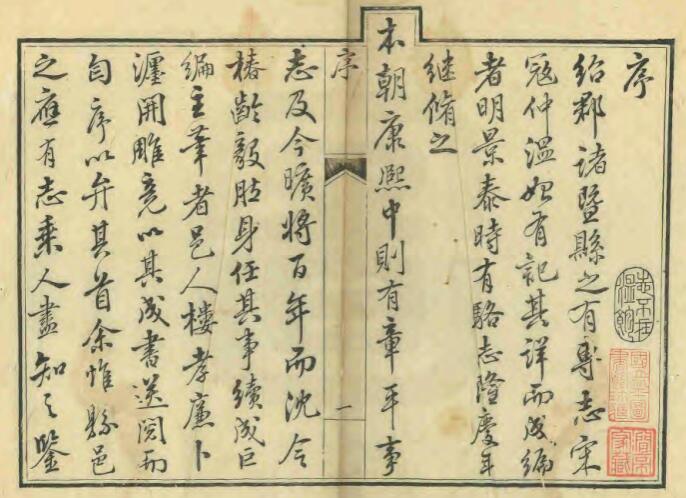 序
紹郡諸暨縣之有專志宋
寇仲溫始有記其詳而成編
者明景泰時有駱志隆慶年
继脩之
本朝康熙中則有章平事
序
一
志及今曠將百年而沈令
椿齡毅肰身任其事續成巨
編主筆者邑人樓孝廉卜
瀍開雕竟以其成書送閱而
匄序以弁其首余惟縣邑
之應有志乘人盡知之鑒